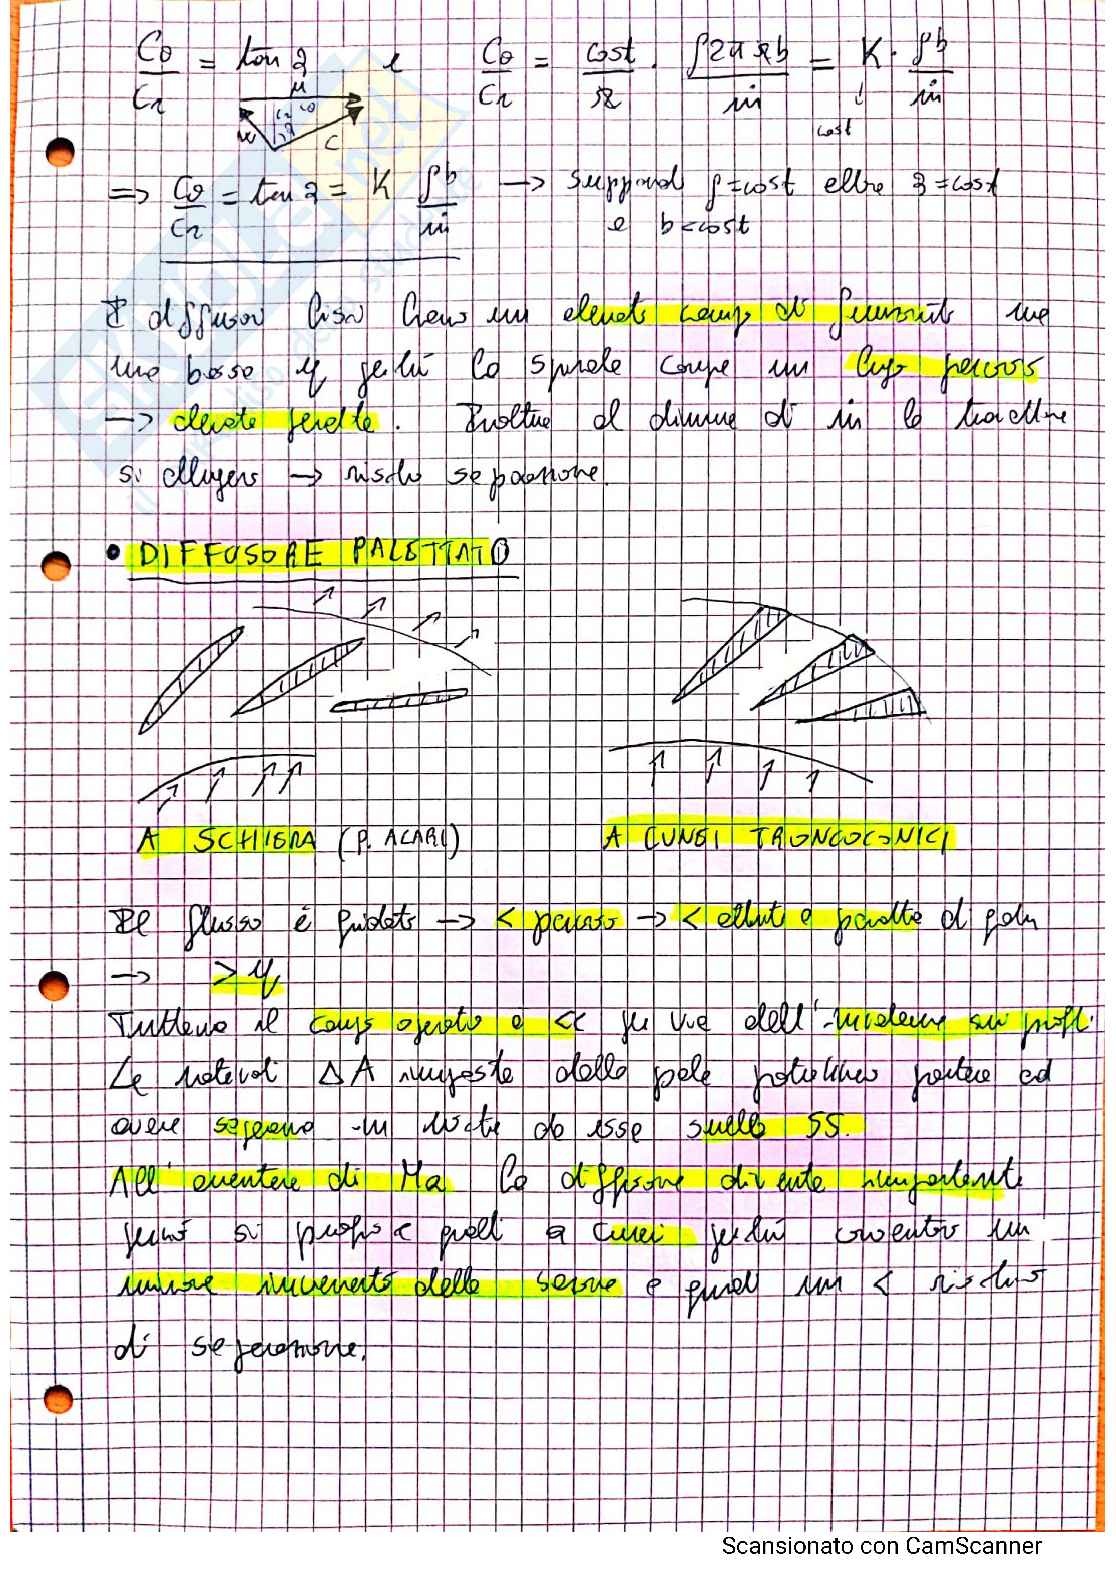 Cθ/Cr = tan α e Cθ/Cr = cost/r · ρ2πrb/ṁ = K · ρb/ṁ
u
w Cr Cθ α C
cost
=> Cθ/Cr = tan α = K ρb/ṁ → supponendo ρ=cost allora α=cost
e b=cost
I diffusori lisci hanno un elevato campo di funzionamento ma
una bassa η perché la spirale compie un lungo percorso
→ elevate perdite. Inoltre al diminuire di ṁ la traiettoria
si allunga → rischio separazione.
• DIFFUSORE PALETTATO
A SCHIERA (P. ALARI)
A CUNEI TRONCOCONICI
Il flusso è guidato → < percorso → < attrito e perdite di
→ > η
Tuttavia il campo operativo è << per via dell'incidenza sui profili.
Le notevoli ΔA imposte dalle pale potrebbero portare ad
avere separazione in uscita da esse sulla SS.
All'aumentare di Ma la diffusione diventa importante
perciò si quelli a cunei perché consentono un
minore incremento della sezione e quindi un < rischio
di separazione.
Scansionato con CamScanner